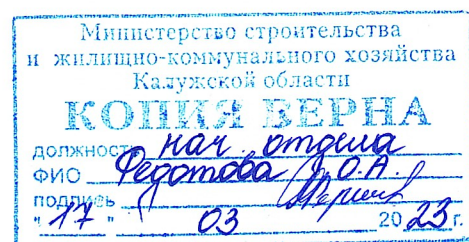 Министерство строительства
и жилищно-коммунального хозяйства
Калужской области
КОПИЯ ВЕРНА
должность нач отдела
ФИО Федотова О.А.
подпись
"17" 03 2023 г.